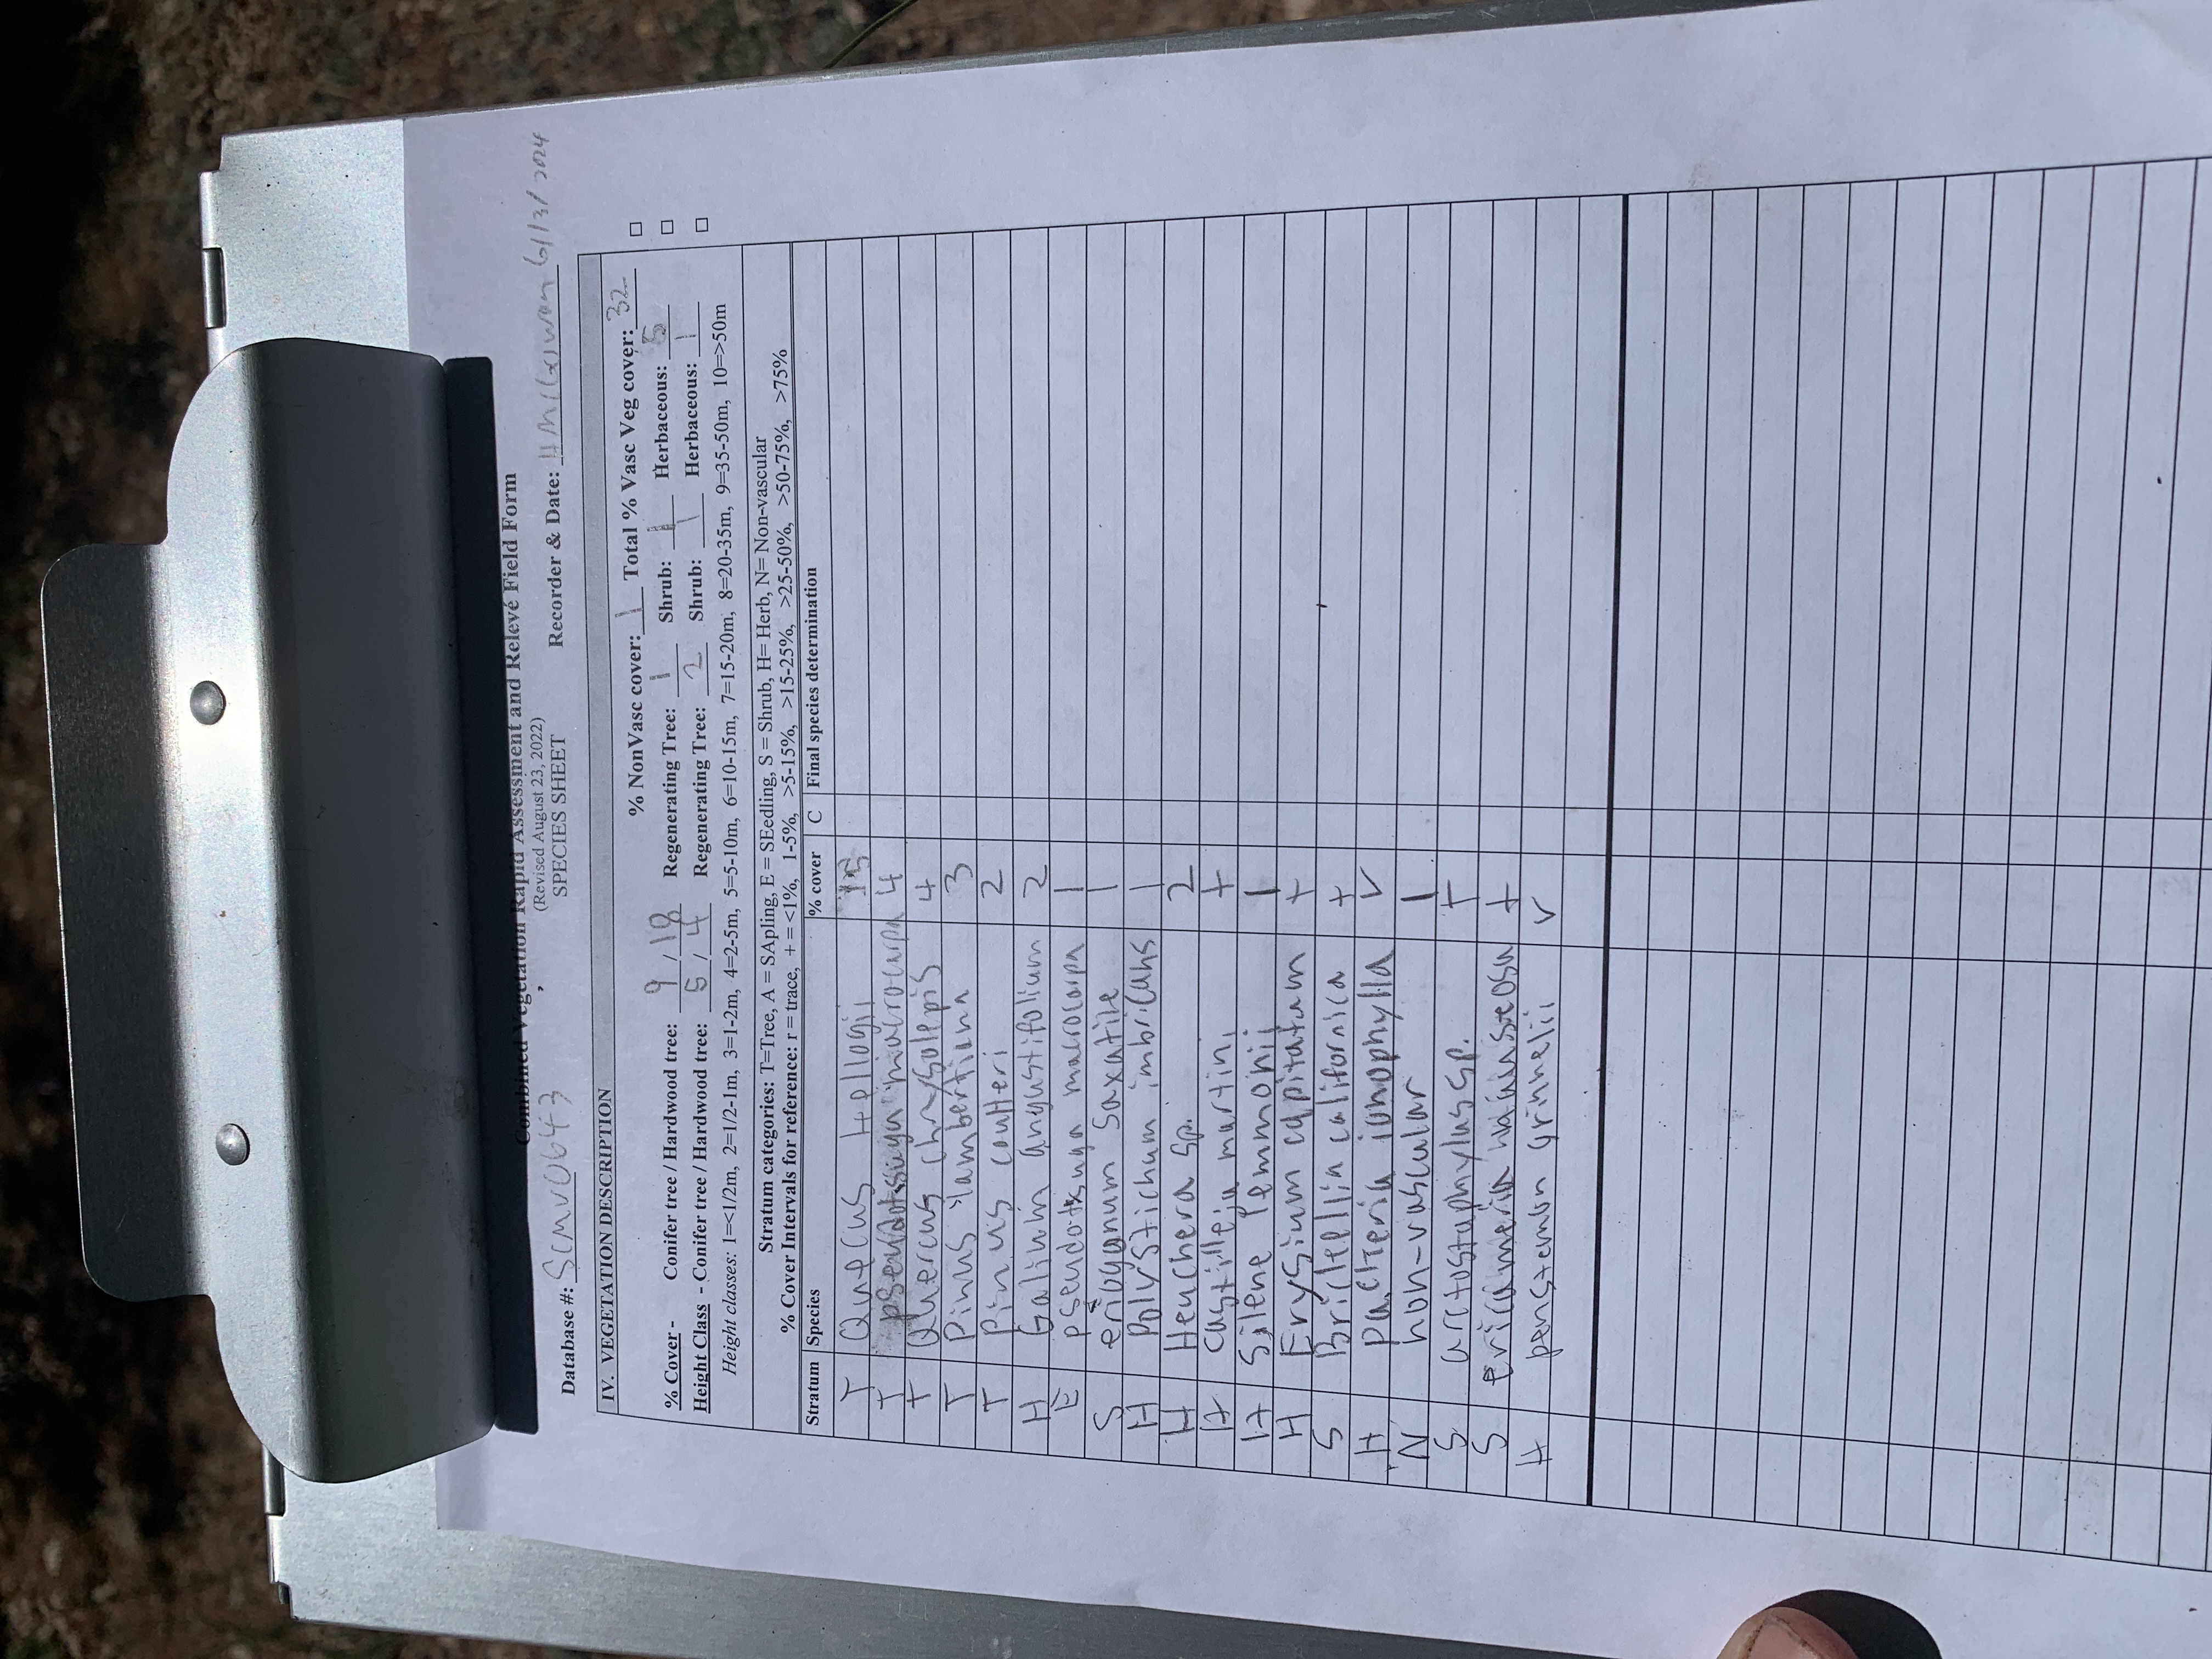 Combined Vegetation Rapid Assessment and Relevé Field Form
(Revised August 23, 2022)
SPECIES SHEET
Database #: SCMV0643 Recorder & Date: HMcGowan 6/13/2024
IV. VEGETATION DESCRIPTION
% NonVasc cover: 1 Total % Vasc Veg cover: 32 □
% Cover - Conifer tree / Hardwood tree: 9 / 18 Regenerating Tree: 1 Shrub: 1 Herbaceous: 5 □
Height Class - Conifer tree / Hardwood tree: 5 / 4 Regenerating Tree: 2 Shrub: 1 Herbaceous: 1 □
Height classes: 1=<1/2m, 2=1/2-1m, 3=1-2m, 4=2-5m, 5=5-10m, 6=10-15m, 7=15-20m, 8=20-35m, 9=35-50m, 10=>50m
Stratum categories: T=Tree, A = SApling, E = SEedling, S = Shrub, H= Herb, N= Non-vascular
% Cover Intervals for reference: r = trace, + = <1%, 1-5%, >5-15%, >15-25%, >25-50%, >50-75%, >75%
Stratum Species % cover C Final species determination
T Quecus kellogi 15
T pseudotsuga macrocarpa 4
T Quercus chrysolepis 4
T Pinus lambertiana 3
T Pinus coulteri 2
H Galium angustifolium 2
E pseudotsuga macrocarpa 1
S eriogonum saxatile 1
H Polystichum imbricans 1
H Heuchera sp. 2
H castilleja martini +
H Silene lemmonii 1
H Erysium capitatum +
S Brickellia californica +
H paeteria ionophylla r
N non-vascular 1
S arctostaphylus sp. +
S ericameria nauseosa +
H penstemon grinnelii r